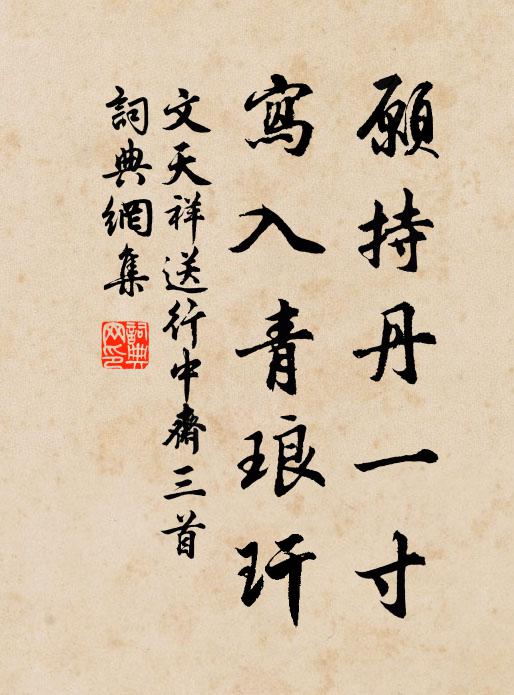 願持丹一寸
寫入青琅玕
文天祥送行中齋三首
詞典網集
詞典網印